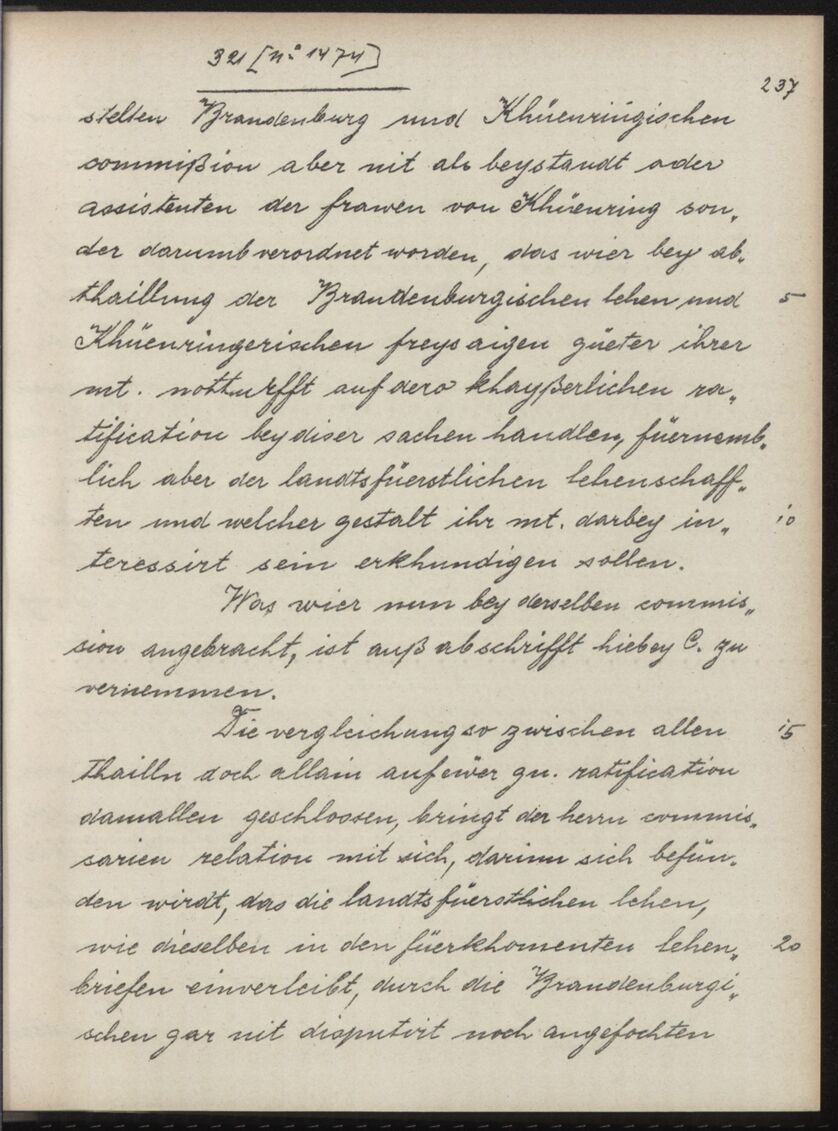 321 [nº 1474]
237
stellten Brandenburg und Khüenringischen
commißion aber nit als beystandt oder
assistenten der frawen von Khüenring son„
der darumb verordnet worden, das wier bey ab„
thaillung der Brandenburgischen lehen und 5
Khüenringerischen freys aigen güeter ihrer
mt. notturfft auf dero khayßerlichen ra„
tification bey diser sachen handlen, füernemb„
lich aber der landtsfüerstlichen lehenschaff„
ten und welcher gestalt ihr mt. darbey in„ 10
teressirt sein erkhundigen sollen.
Was wier nun bey derselben commis„
sion angebracht, ist auß abschrifft hiebey C. zu
vernemmen.
Die vergleichung so zwischen allen 15
thailln doch allain auf ewer gn. ratification
damallen geschlossen, bringt der herrn commis„
sarien relation mit sich, darinn sich befün„
den wirdt, das die landtsfüerstlichen lehen,
wie dieselben in den füerkhomenten lehen„ 20
briefen einverleibt, durch die Brandenburgi„
schen gar nit disputirt noch angefochten